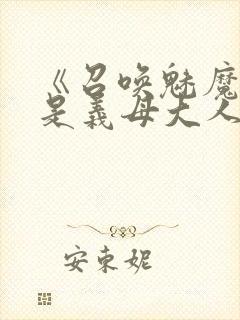 《召唤魅魔
是義母大人
安東妮